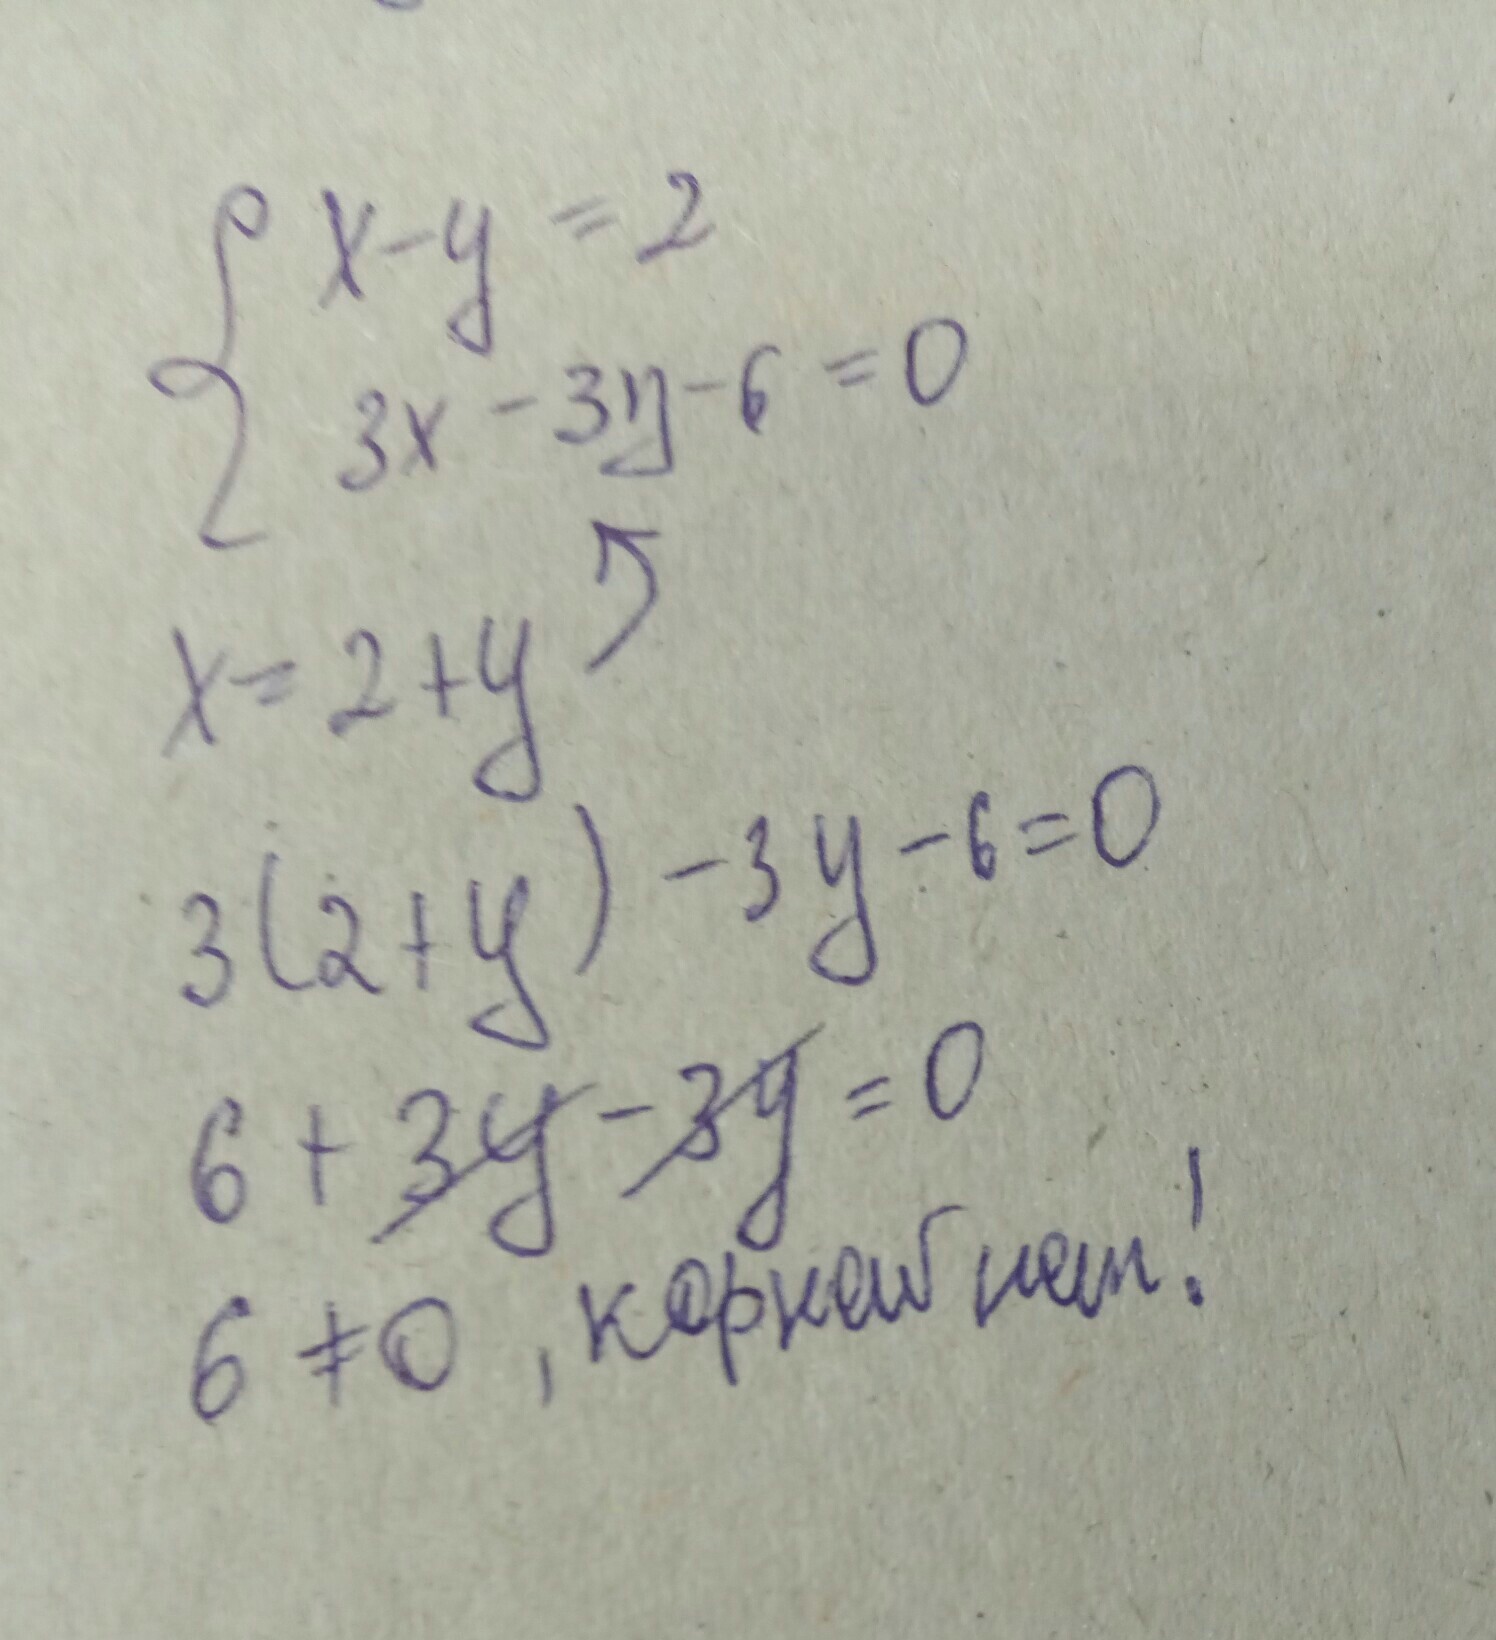 x-y = 2
3x - 3y - 6 = 0
x = 2+y
3(2+y) - 3y - 6 = 0
6 + 3y - 3y = 0
6 ≠ 0, корней нет!